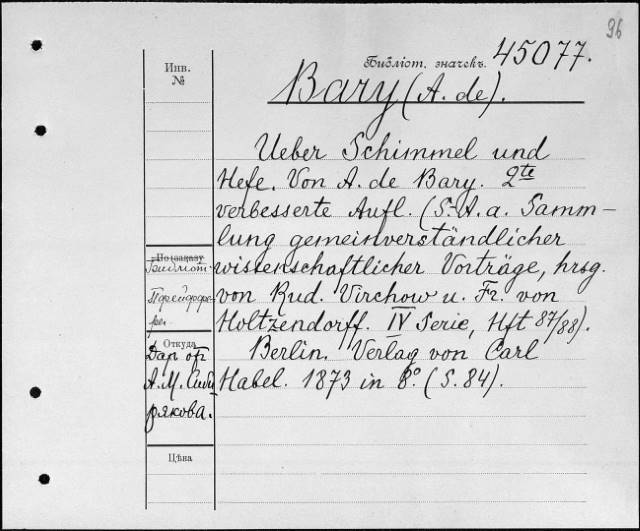 96
Библіот. значекъ. 45077.
Инв.
№
Bary (A. de).
Ueber Schimmel und
Hefe. Von A. de Bary. 2te
verbesserte Aufl. (S.-A. a. Samm-
lung gemeinverständlicher
wissenschaftlicher Vorträge, hrsg.
von Rud. Virchow u. Fr. von
Holtzendorff. IV Serie, Hft 87/88).
Berlin. Verlag von Carl
Habel. 1873 in 8º. (S. 84).
По заказу
Откуда
Дар от
А. М. Сиби
рякова.
Цѣна